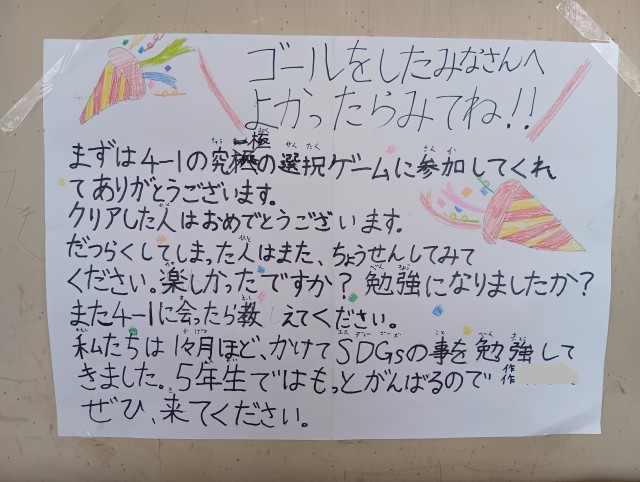 ゴールをしたみなさんへ
よかったらみてね!!
まずは4-1の究極の選択ゲームに参加してくれ
てありがとうございます。
クリアした人はおめでとうございます。
だつらくしてしまった人はまた、ちょうせんしてみて
ください。楽しかったですか?勉強になりましたか?
また4-1に会ったら教えてください。
私たちは1ヶ月ほど、かけてSDGsの事を勉強して
きました。5年生ではもっとがんばるので
ぜひ、来てください。